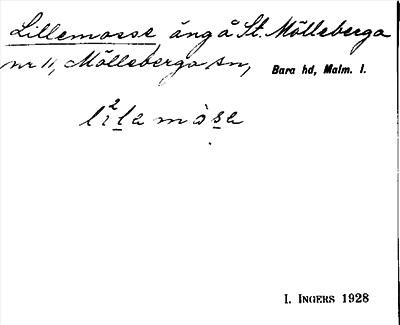 Lillemosse, äng å St. Mölleberga
nr 11, Mölleberga sn,
Bara hd, Malm. l.
li²la mòsa
I. INGERS 1928